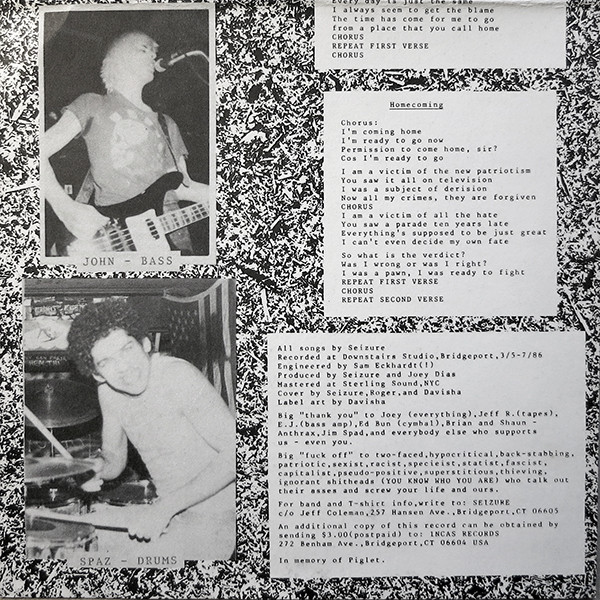 Every day is just the same
I always seem to get the blame
The time has come for me to go
from a place that you call home
CHORUS
REPEAT FIRST VERSE
CHORUS
Homecoming
Chorus:
I'm coming home
I'm ready to go now
Permission to come home, sir?
Cos I'm ready to go
I am a victim of the new patriotism
You saw it all on television
I was a subject of derision
Now all my crimes, they are forgiven
CHORUS
I am a victim of all the hate
You saw a parade ten years late
Everything's supposed to be just great
I can't even decide my own fate
So what is the verdict?
Was I wrong or was I right?
I was a pawn, I was ready to fight
REPEAT FIRST VERSE
CHORUS
REPEAT SECOND VERSE
JOHN - BASS
SPAZ - DRUMS
All songs by Seizure
Recorded at Downstairs Studio,Bridgeport,3/5-7/86
Engineered by Sam Eckhardt(!)
Produced by Seizure and Joey Dias
Mastered at Sterling Sound,NYC
Cover by Seizure,Roger,and Davisha
Label art by Davisha
Big "thank you" to Joey (everything),Jeff R.(tapes),
E.J.(bass amp),Ed Bun (cymbal),Brian and Shaun -
Anthrax,Jim Spad,and everybody else who supports
us - even you.
Big "fuck off" to two-faced,hypocritical,back-stabbing,
patriotic,sexist,racist,specieist,statist,fascist,
capitalist,pseudo-positive,superstitious,thieving,
ignorant shitheads (YOU KNOW WHO YOU ARE) who talk out
their asses and screw your life and ours.
For band and T-shirt info,write to: SEIZURE
c/o Jeff Coleman,257 Hansen Ave.,Bridgeport,CT 06605
An additional copy of this record can be obtained by
sending $3.00(postpaid) to: INCAS RECORDS
272 Benham Ave.,Bridgeport,CT 06604 USA
In memory of Piglet.